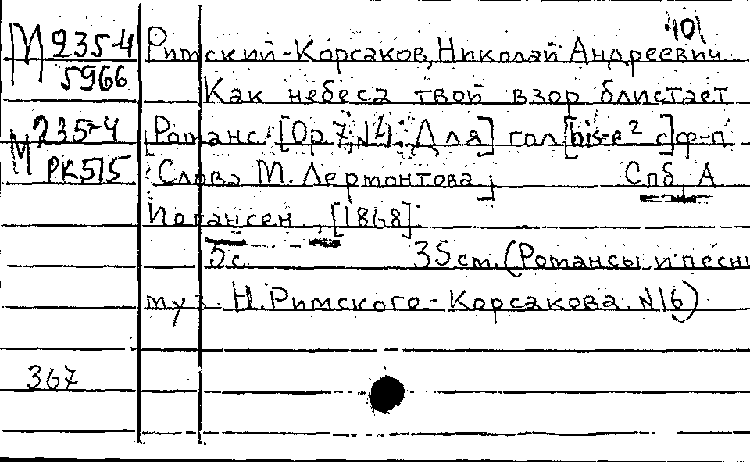 401
М 235-4 Римский-Корсаков, Николай Андреевич
5966 Как небеса твой взор блистает
М 235-4 Романс. [Op. 7, №4. Для] гол. [bis-e² с] ф-п.
РК515 [Слова М. Лермонтова.] Спб, А
Иогансен, [1868].
5с. 35 cm. (Романсы и песни
муз. Н. Римского-Корсакова. №16)
367